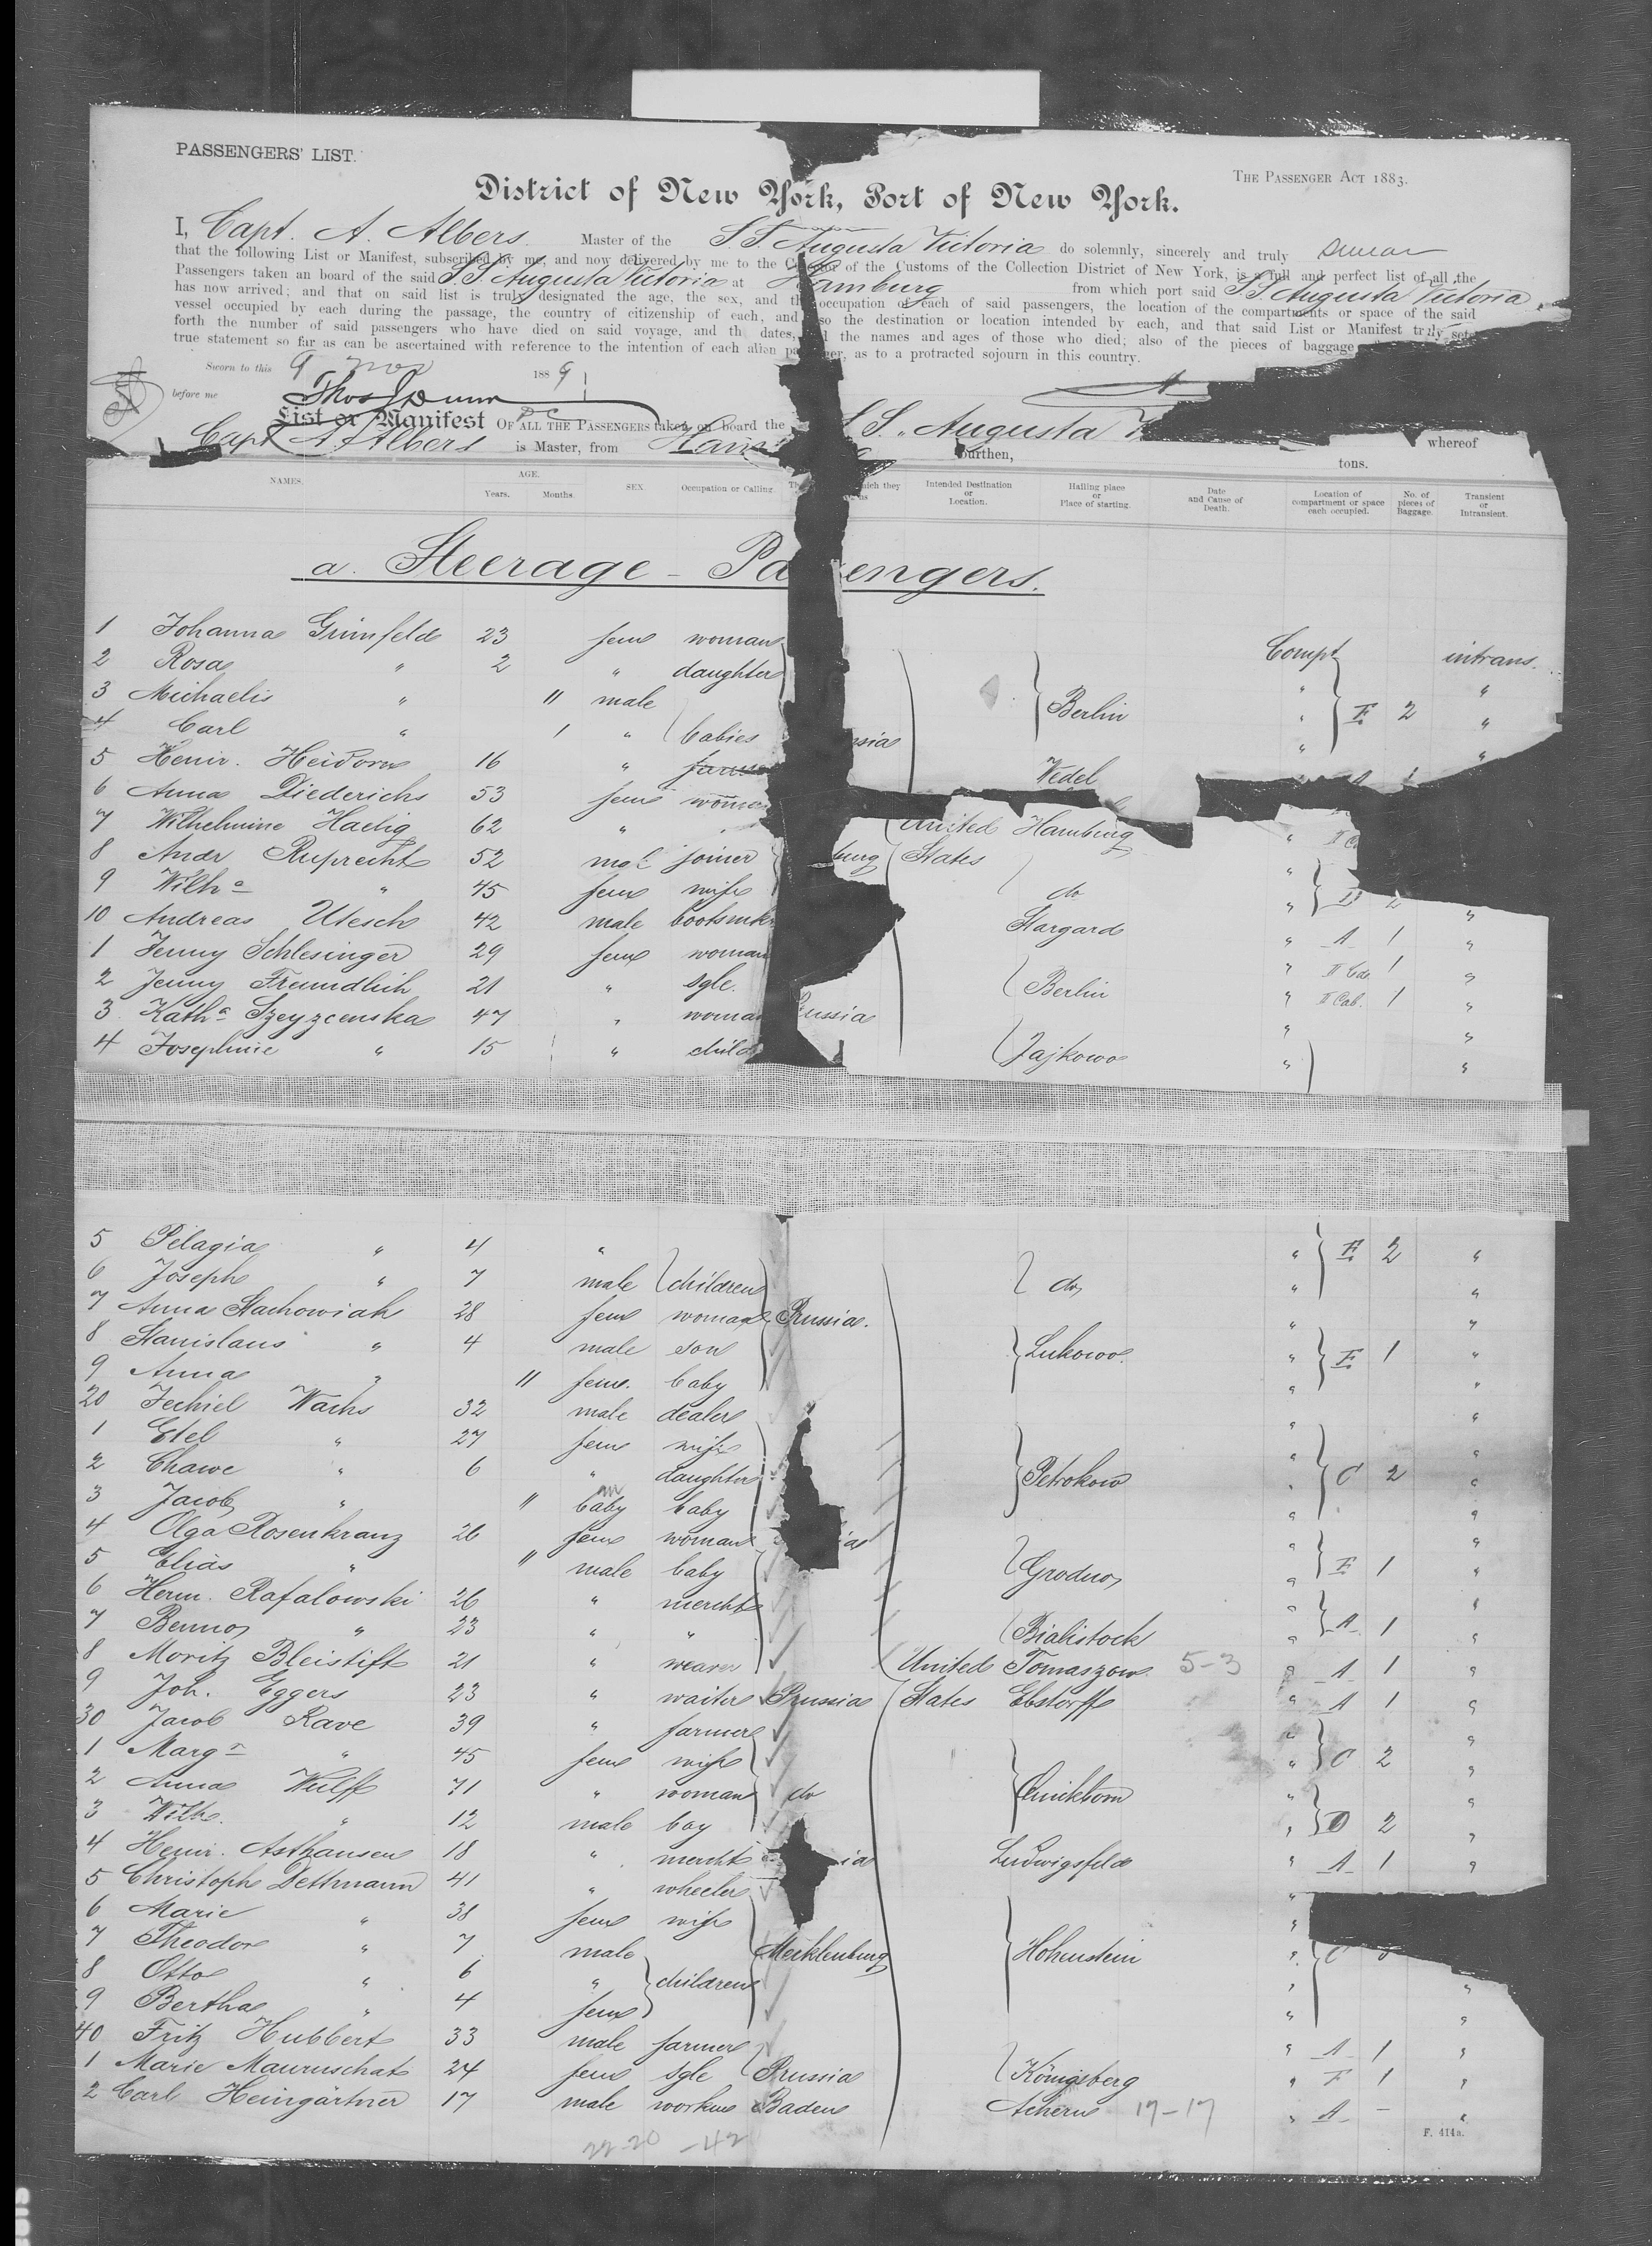 PASSENGERS' LIST.
THE PASSENGER ACT 1883.
District of New York, Port of New York.
I, Capt. A. Albers Master of the S.S. Augusta Victoria do solemnly, sincerely and truly swear
that the following List or Manifest, subscribed by me, and now delivered by me to the of the Customs of the Collection District of New York, is a full and perfect list of all the
Passengers taken an board of the said S.S. Augusta Victoria at Hamburg from which port said S.S. Augusta Victoria
has now arrived; and that on said list is truly designated the age, the sex, and the occupation of each of said passengers, the location of the compartments or space of the said
vessel occupied by each during the passage, the country of citizenship of each, and also the destination or location intended by each, and that said List or Manifest truly sets
forth the number of said passengers who have died on said voyage, and the dates, the names and ages of those who died; also of the pieces of baggage
true statement so far as can be ascertained with reference to the intention of each alien passenger, as to a protracted sojourn in this country.
Sworn to this 9 Nov 1889
before me Thos Dunn
List or Manifest OF ALL THE PASSENGERS taken on board the S.S. "Augusta whereof
Capt A. Albers is Master, from burthen, tons.
NAMES. AGE. Years. Months. SEX. Occupation or Calling. which they Intended Destination or Location. Hailing place or Place of starting. Date and Cause of Death. Location of compartment or space each occupied. No. of pieces of Baggage. Transient or Intransient.
a. Steerage - Pa engers.
1 Johanna Grünfeld 23 fem woman Compt intrans.
2 Rosa " 2 " daughter "
3 Michaelis " 11 male Berlin " F 2 "
4 Carl " 1 " babies ssia " "
5 Heinr. Heidorn 16 " farmer Wedel A 1
6 Anna Diederichs 53 fem woman
7 Wilhelmine Haelig 62 " United Hamburg "
8 Andr Ruprecht 52 male joiner burg States "
9 Wilhe " 45 fem wife do " D 2 "
10 Andreas Utesch 42 male bootsmkr Stargard " A 1 "
1 Jenny Schlesinger 29 fem woman " II Cab 1 "
2 Jenny Freundlich 21 " sgle. Berlin " II Cab. 1 "
3 Katha Szeyzcenska 47 " woman Prussia " "
4 Josephine " 15 " child Jajkowo " "
5 Pelagia " 4 " " F 2 "
6 Joseph " 7 male children do " "
7 Anna Stachowiak 28 fem woman Prussia. " "
8 Stanislaus " 4 male son Lukowo. " F 1 "
9 Anna " 11 fem. baby " "
20 Jechiel Wachs 32 male dealer " "
1 Etel " 27 fem wife " "
2 Chawe " 6 " daughter Petrokow " C 2 "
3 Jacob " 11 baby baby " "
4 Olga Rosenkranz 26 fem woman ia " "
5 Elias " 11 male baby Grodno " F 1 "
6 Herm. Rafalowski 26 " mercht " "
7 Benno " 23 " " Bialistock " A 1 "
8 Moritz Bleistift 21 " weaver United Tomaszow 5-3 " A 1 "
9 Joh. Eggers 23 " waiter Prussia States Ebstorff " A 1 "
30 Jacob Rave 39 " farmer " "
1 Marga " 45 fem wife " C 2 "
2 Anna Wulff 71 " woman do Quickborn " "
3 Wilh. " 12 male boy " D 2 "
4 Heinr. Asthausen 18 " mercht ia Ludwigsfeld " A 1 "
5 Christoph Dettmann 41 " wheeler "
6 Marie " 38 fem wife "
7 Theodor " 7 male Mecklenburg Hohenstein " C
8 Otto " 6 " children " "
9 Bertha " 4 fem " "
40 Fritz Hubbert 33 male farmer " A 1 "
1 Marie Mauruschat 24 fem sgle Prussia Königsberg " F 1 "
2 Carl Heingärtner 17 male worker Baden Achern 17-17 " A - "
22-20 -42
F. 414a.